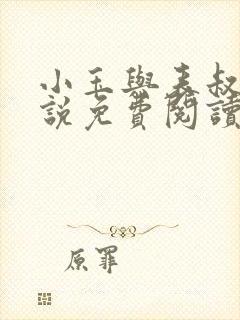 小玉與表叔
說免費閱讀
原罪